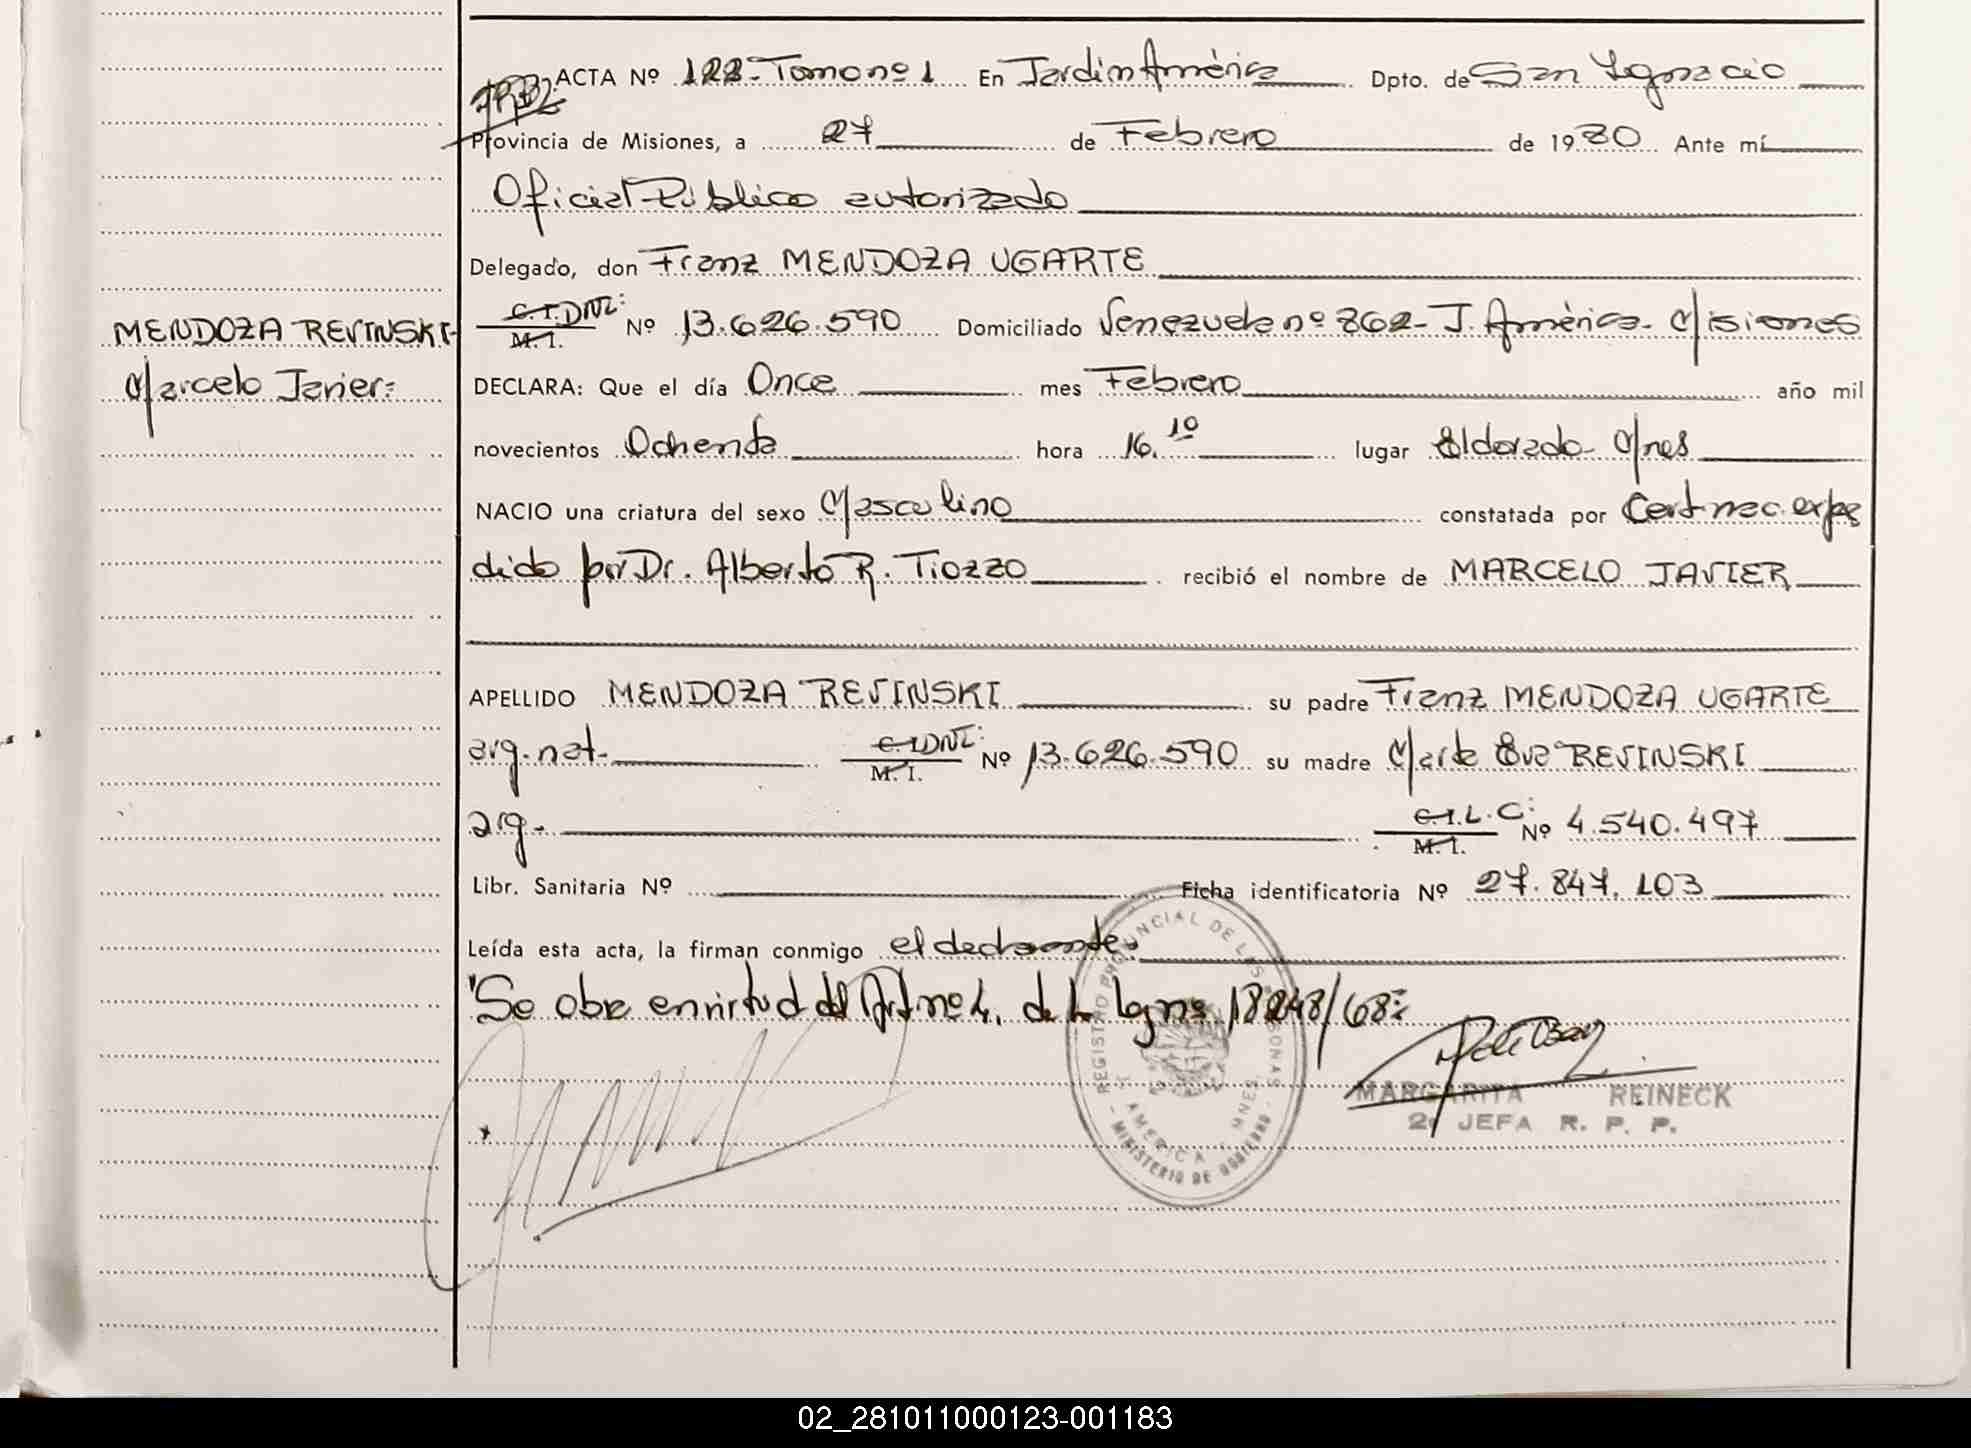 ACTA Nº 122- Tomo nº 1 En Jardín América Dpto. de San Ignacio
Provincia de Misiones, a 27 de Febrero de 1980 Ante mí
Oficial Público autorizado
Delegado, don Franz MENDOZA UGARTE
MENDOZA REVINSKI-
Marcelo Javier:
C.I. DNI: M.I. Nº 13.626.590 Domiciliado Venezuela nº 862- J. América- Misiones
DECLARA: Que el día Once mes Febrero año mil
novecientos Ochenta hora 16.10 lugar Eldorado- Mnes
NACIO una criatura del sexo Masculino constatada por Cert nac. expe
dido por Dr. Alberto R. Tiozzo recibió el nombre de MARCELO JAVIER
APELLIDO MENDOZA REVINSKI su padre Franz MENDOZA UGARTE
arg. nat. C.I. DNI: M.I. Nº 13.626.590 su madre Marta Eva REVINSKI
arg- C.I. L.C: M.I. Nº 4.540.497
Libr. Sanitaria Nº Ficha identificatoria Nº 27.847.103
Leída esta acta, la firman conmigo el declarante-
"Se obra en virtud del Art nº 4, de la Ley nº 18248/68:
REGISTRO PROVINCIAL DE LAS PERSONAS
J. AMERICA MNES.
- MINISTERIO DE GOBIERNO -
MARGARITA REINECK
2ª JEFA R. P. P.
02_281011000123-001183